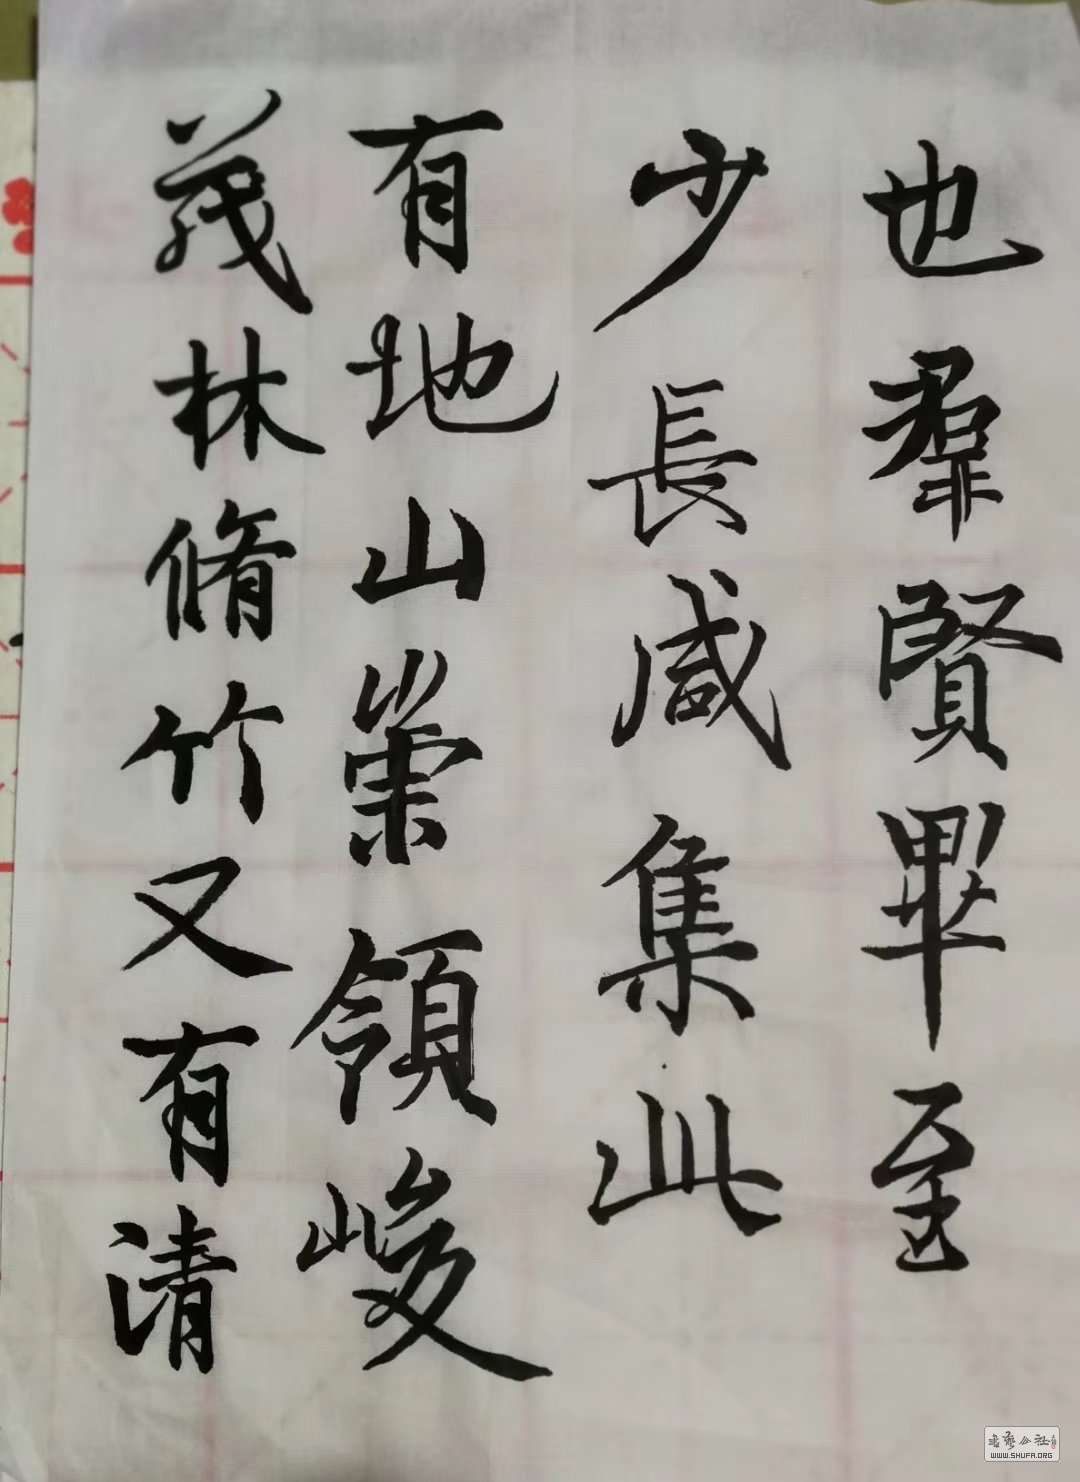 也羣賢畢至
少長咸集此
有地山崇領峻
茂林脩竹又有清
书艺公社
WWW.SHUFA.ORG